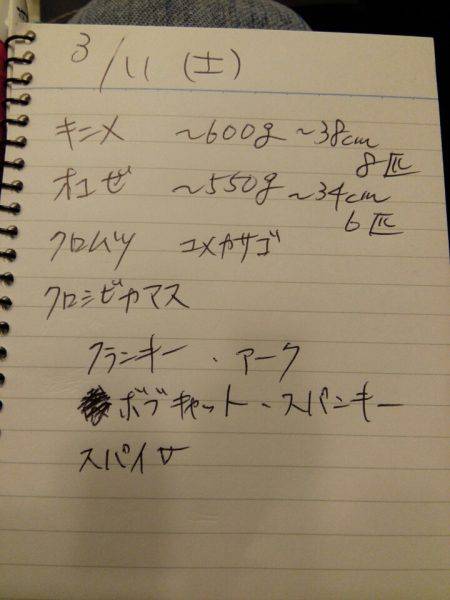 3/11 (土)
キンメ ~600g ~38cm
8匹
オオゼ ~550g ~34cm
6匹
クロムツ ユメカサゴ
クロシビカマス
クランキー・アーク
ボブキャット・スパンキー
スパイサ